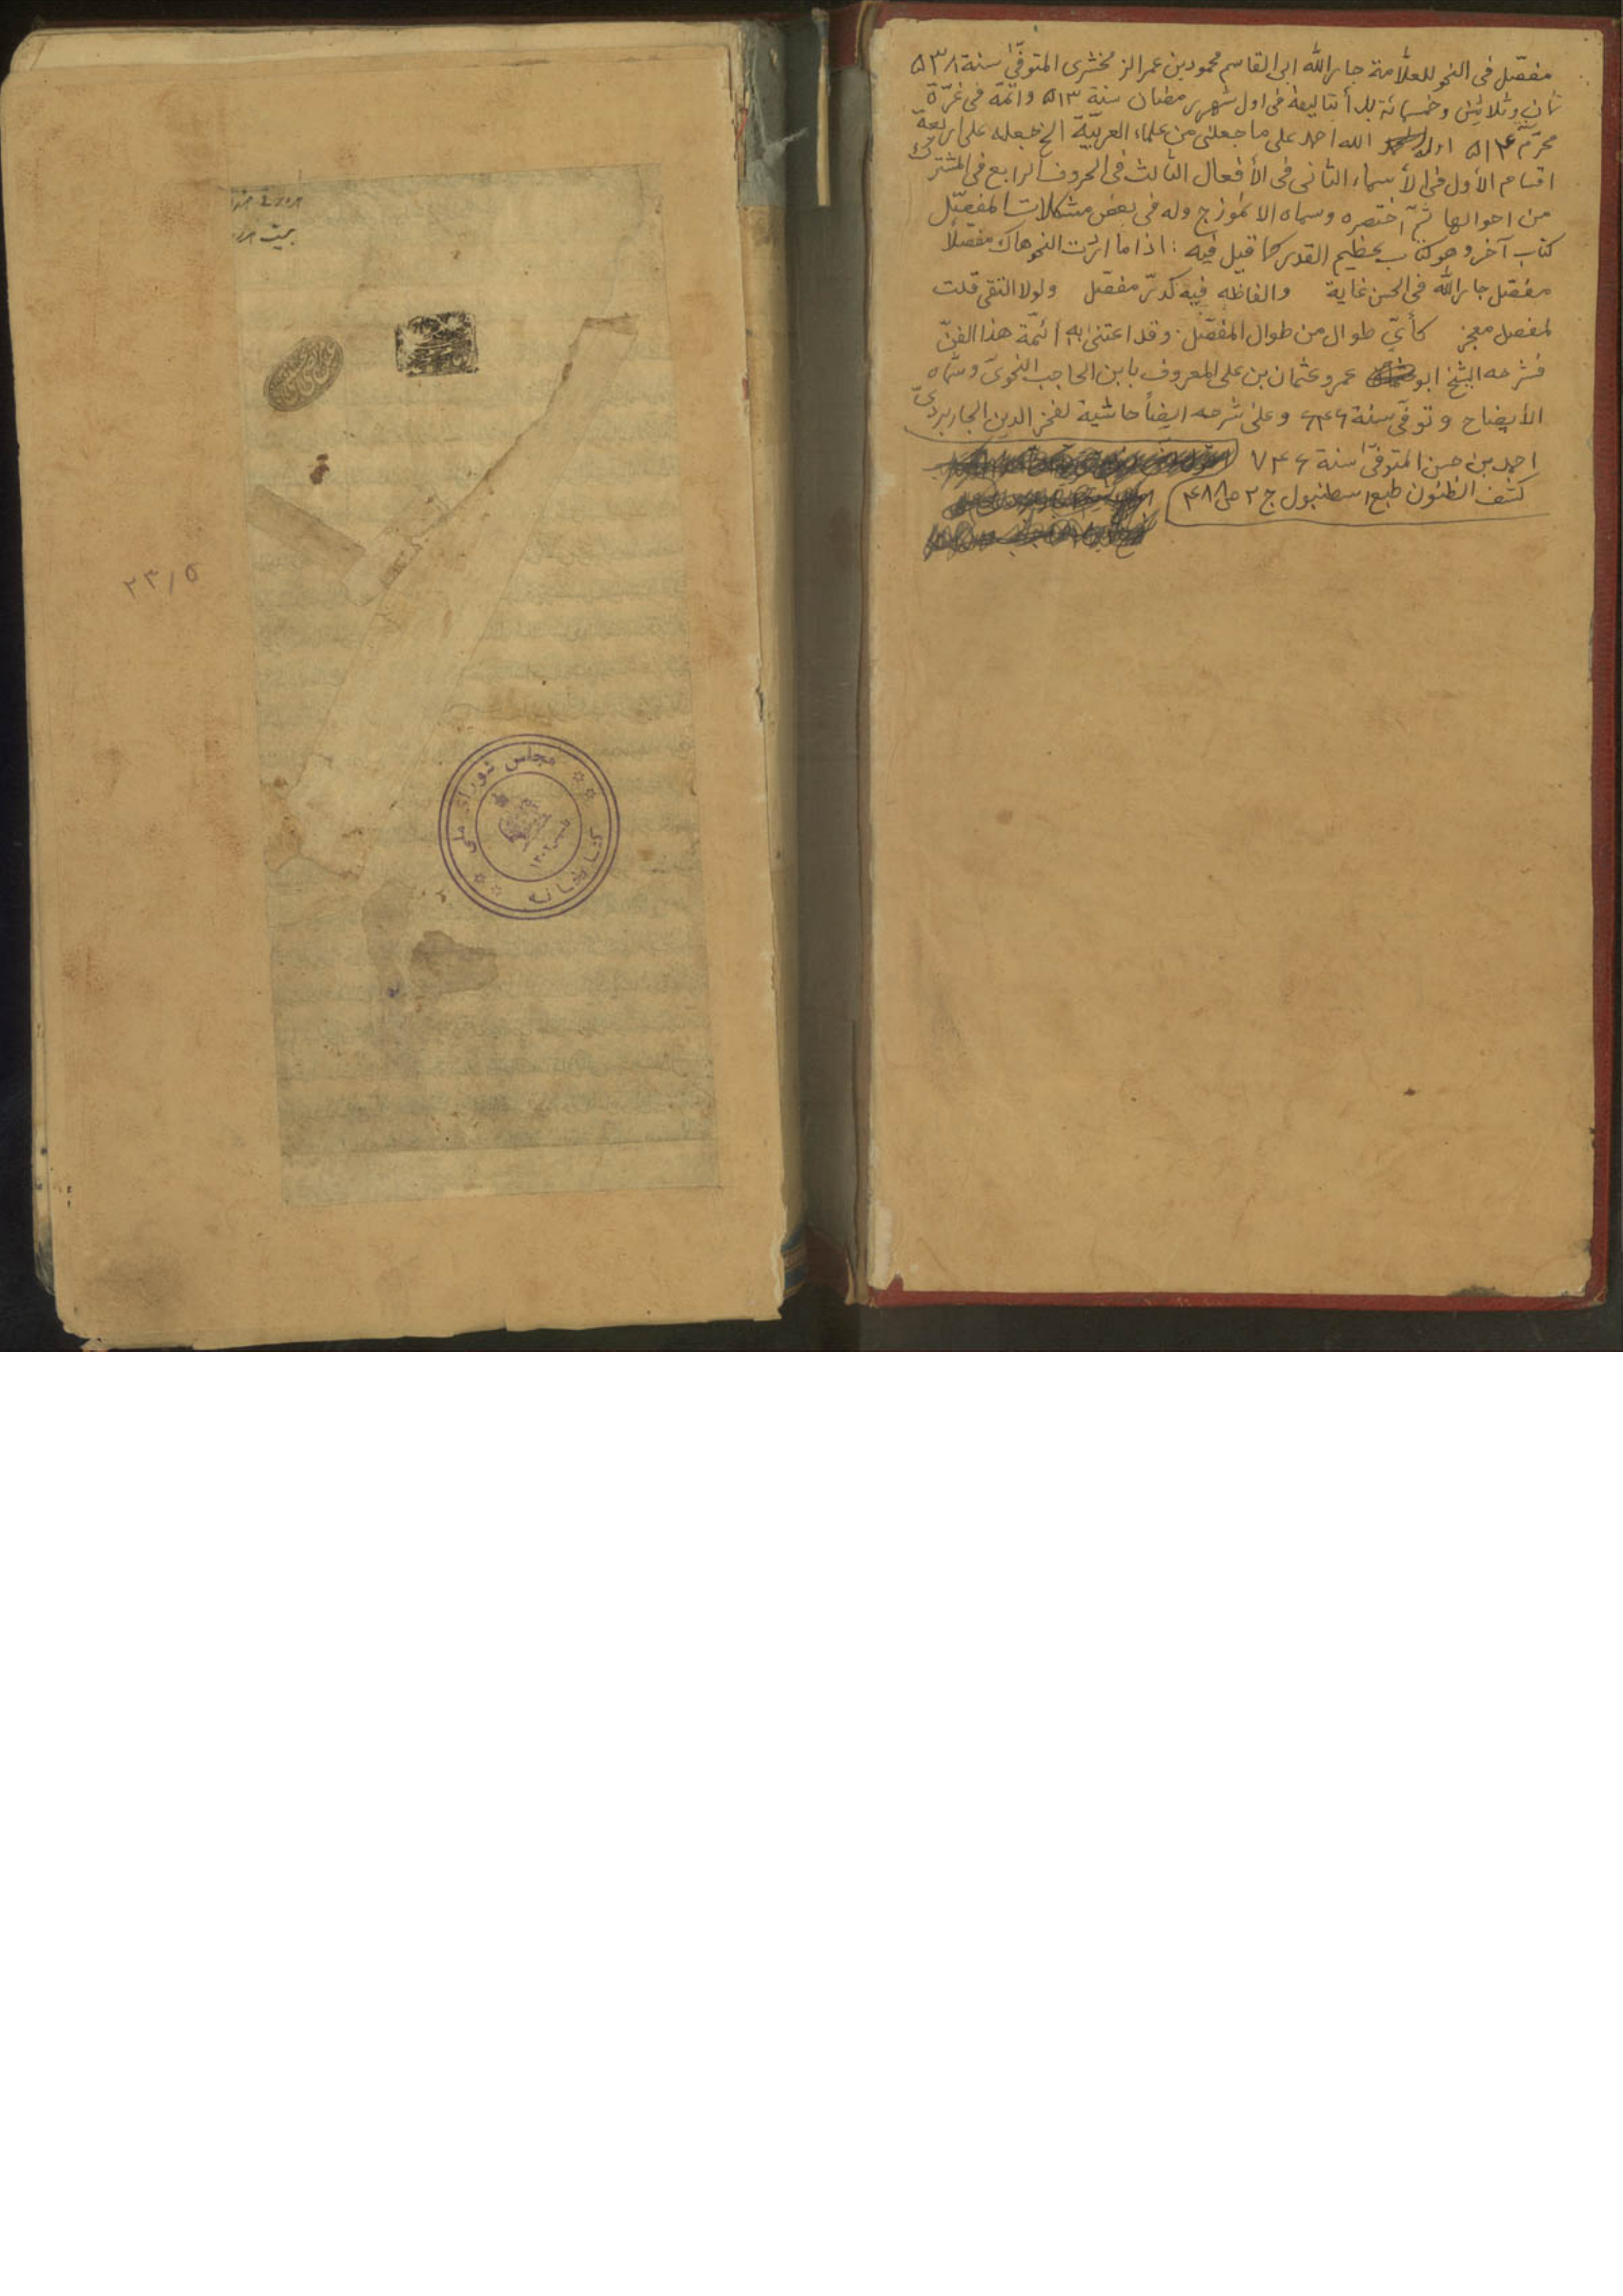 مفصّل فى النحو للعلّامة جار الله ابى القاسم محمود بن عمر الزمخشرى المتوفّىٰ سنة ٥٣٨
ثمان وثلاثين وخمسمائة بدأ بتاليفه فى اول شهر رمضان سنة ٥١٣ واتمّه فى غرّة
محرّم سنة ٥١۴ اوله الله احمد على ما جعلنى من علماء العربيّة الخ جعله على اربعة
اقسام الأول فى الأسماء الثانى فى الأفعال الثالث فى الحروف الرابع فى المشترك
من احوالها ثمّ اختصره وسماه الانموزج وله فى بعض مشكلات المفصّل
كتاب آخر وهو كتاب عظيم القدر كما قيل فيه : اذا ما اردت النحو هاك مفصلا
مفصّل جار الله فى الحسن غاية والفاظه فيه كدرّ مفصّل ولولا التقى قلت
لمفصل معجز كأىّ طوال من طوال المفصّل . وقد اعتنىٰ به ائمّة هذا الفنّ
فشرحه الشيخ ابو عمرو عثمان بن على المعروف بابن الحاجب النحوىّ وسمّاه
الأيضاح وتوفّى سنة ۶۴۶ وعلىٰ شرحه ايضاً حاشية لفخر الدين الجاربردىّ
احمد بن حسن المتوفّىٰ سنة ٧۴۶
كشف الظنون طبع اسطنبول ج ٢ ص ۴٨٨
٢٣/٥
مجلس شوراى ملى
كتابخانه
١٣٠٢